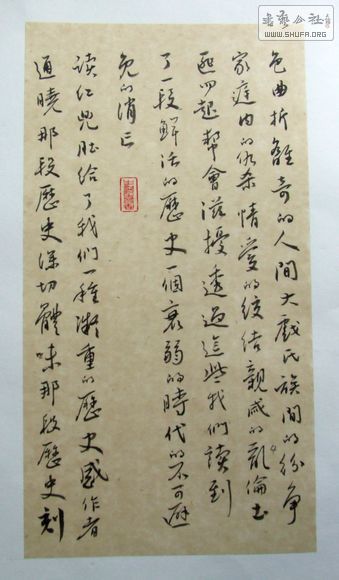 色曲折離奇的人間大戲氏族間的紛争
家庭内的仇杀情愛的绞结親戚的亂倫土
匪四起幫會滋擾透過這些我們讀到
了一段鮮活的歷史一個衰弱的時代的不可避
免的消亡
读红兜肚给了我們一種凝重的歷史感作者
通曉那段歷史深切體味那段歷史刻
書藝公社
WWW.SHUFA.ORG